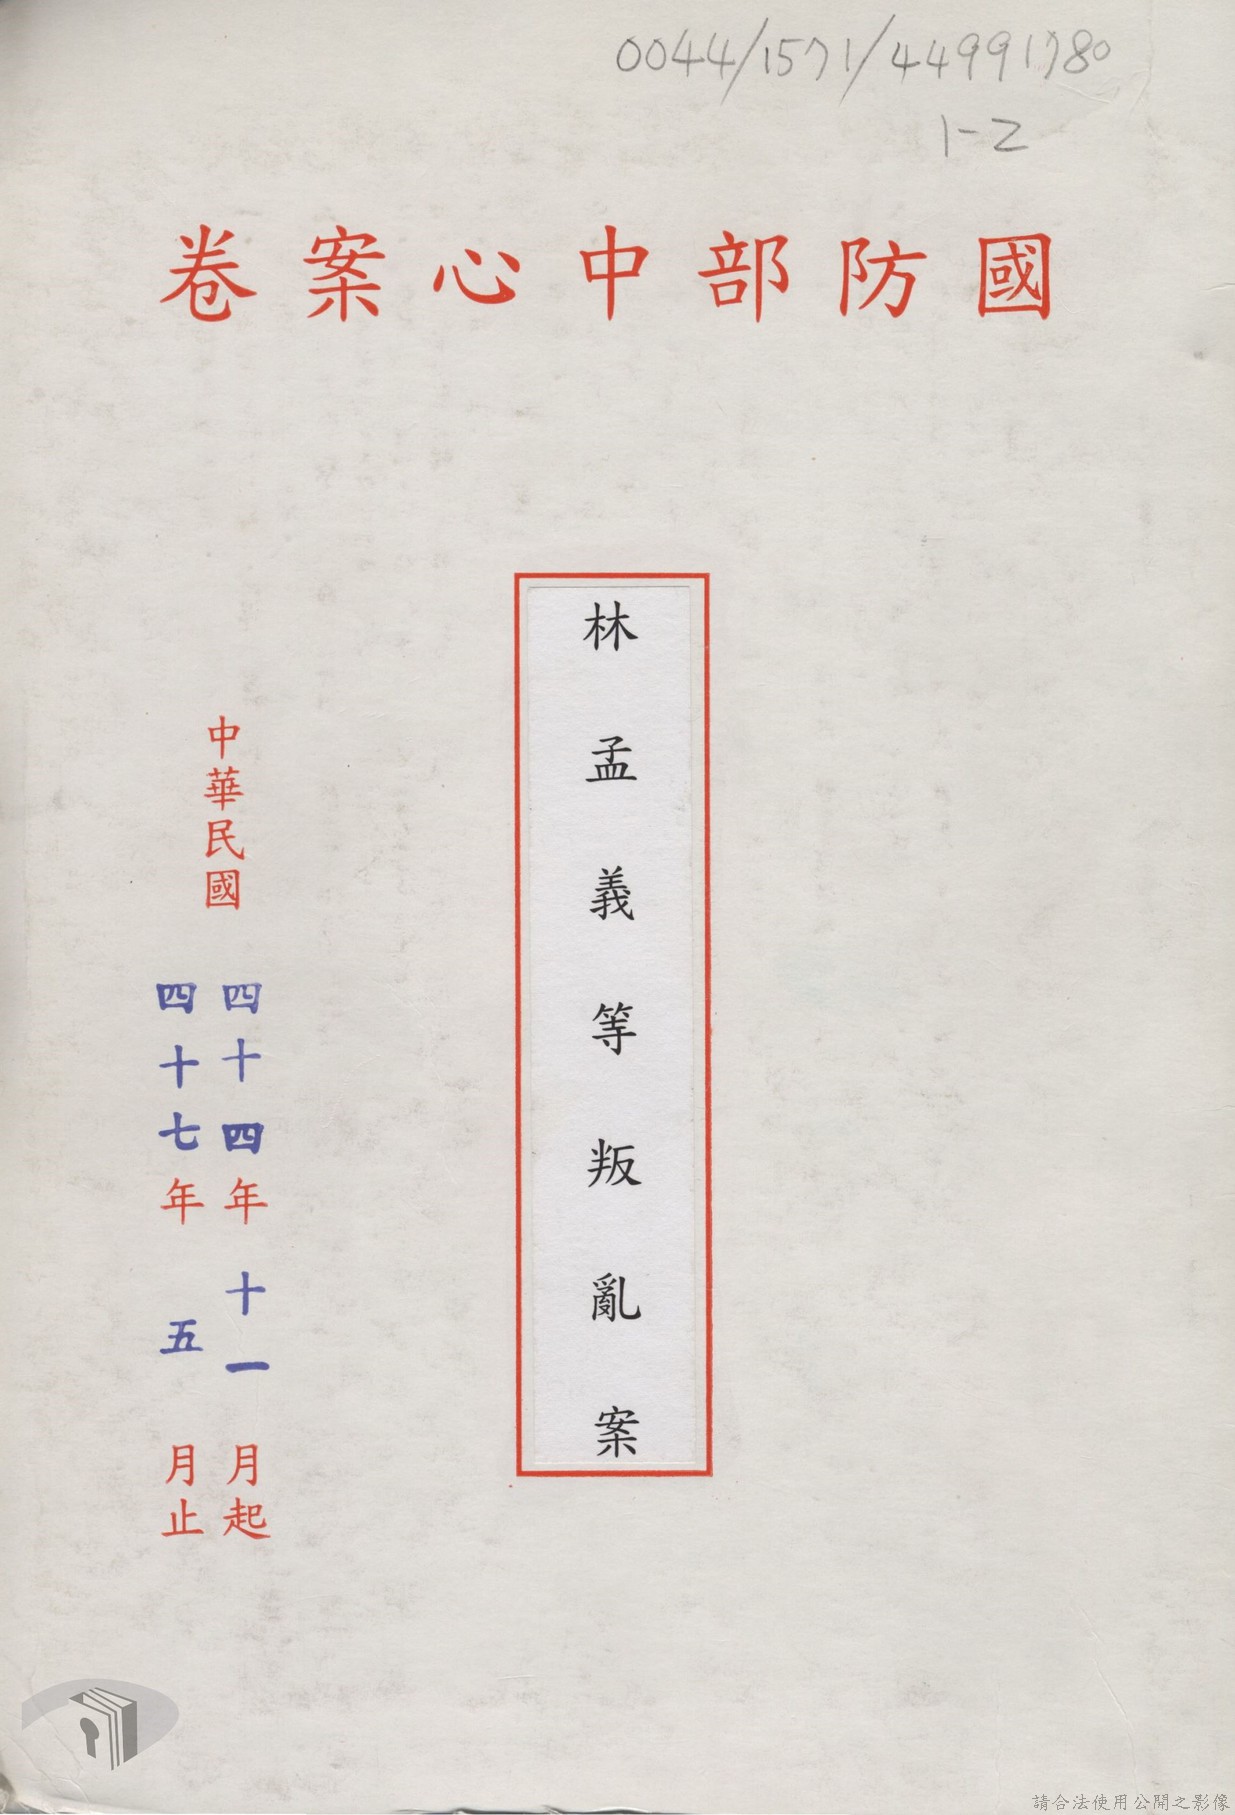 0044/1571/44991780
1-2
國防部中心案卷
林孟義等叛亂案
中華民國
四十四年十一月起
四十七年五月止
請合法使用公開之影像